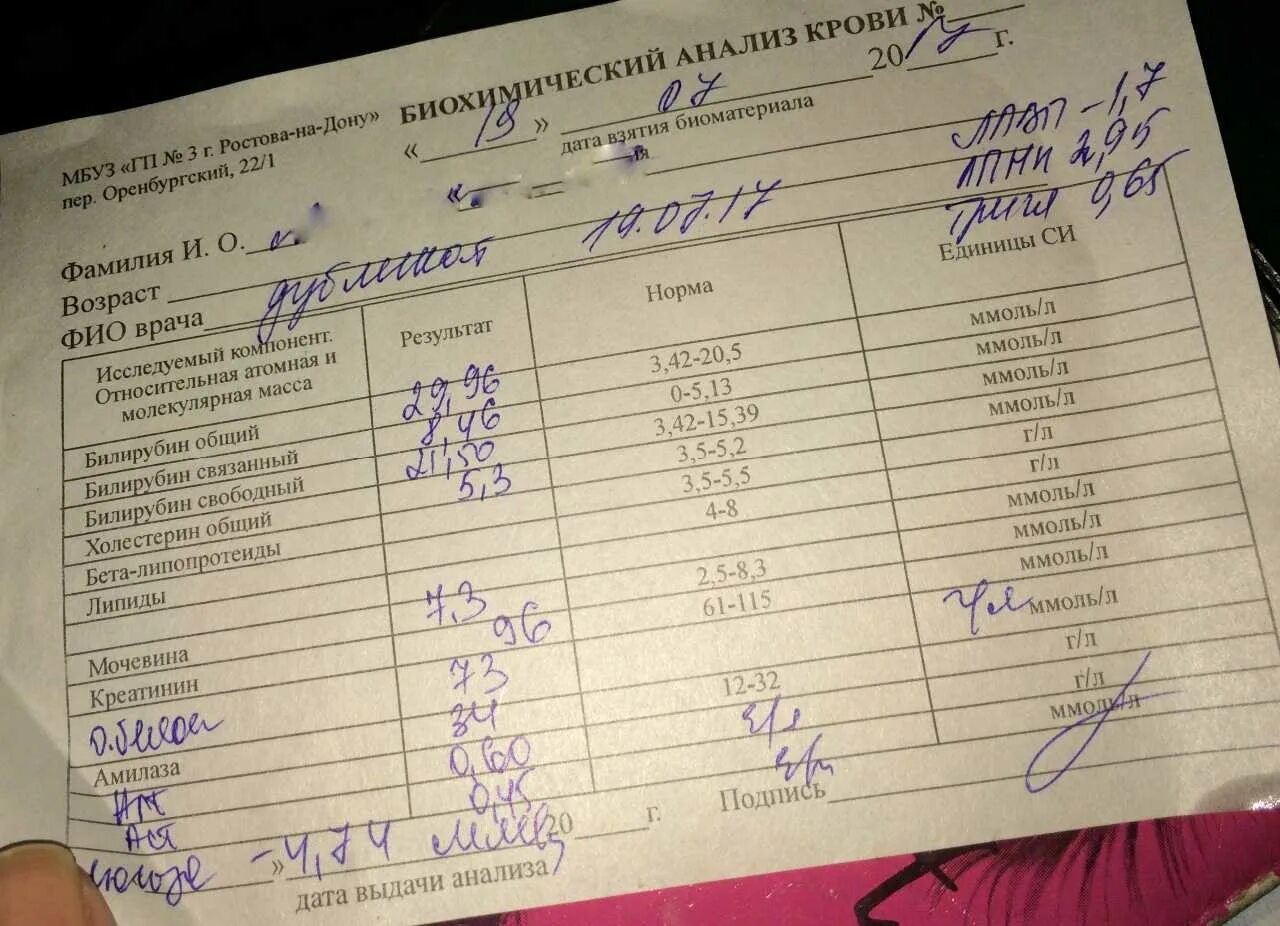 БИОХИМИЧЕСКИЙ АНАЛИЗ КРОВИ №
МБУЗ «ГП № 3 г. Ростова-на-Дону»
пер. Оренбургский, 22/1
« 19 » 07 2017 г.
дата взятия биоматериала
ЛПВП - 1,7
ЛПНП 2,95
Тригл 0,65
Фамилия И. О.
Возраст
ФИО врача
дубликат 19.07.17
Исследуемый компонент. Результат Норма Единицы СИ
Относительная атомная и
молекулярная масса
Билирубин общий 29,96 3,42-20,5 ммоль/л
Билирубин связанный 8,46 0-5,13 ммоль/л
Билирубин свободный 21,50 3,42-15,39 ммоль/л
Холестерин общий 5,3 3,5-5,2 ммоль/л
Бета-липопротеиды 3,5-5,5 г/л
Липиды 4-8 г/л
ммоль/л
Мочевина 7,3 2,5-8,3 ммоль/л
Креатинин 96 61-115 ммоль/л
О.белок 73 ммоль/л
Амилаза 34 12-32 г/л
Алт 0,60 г/л
Аст 0,45 ммоль/л
глюкоза » - 4,74 20 г.
дата выдачи анализа
Подпись